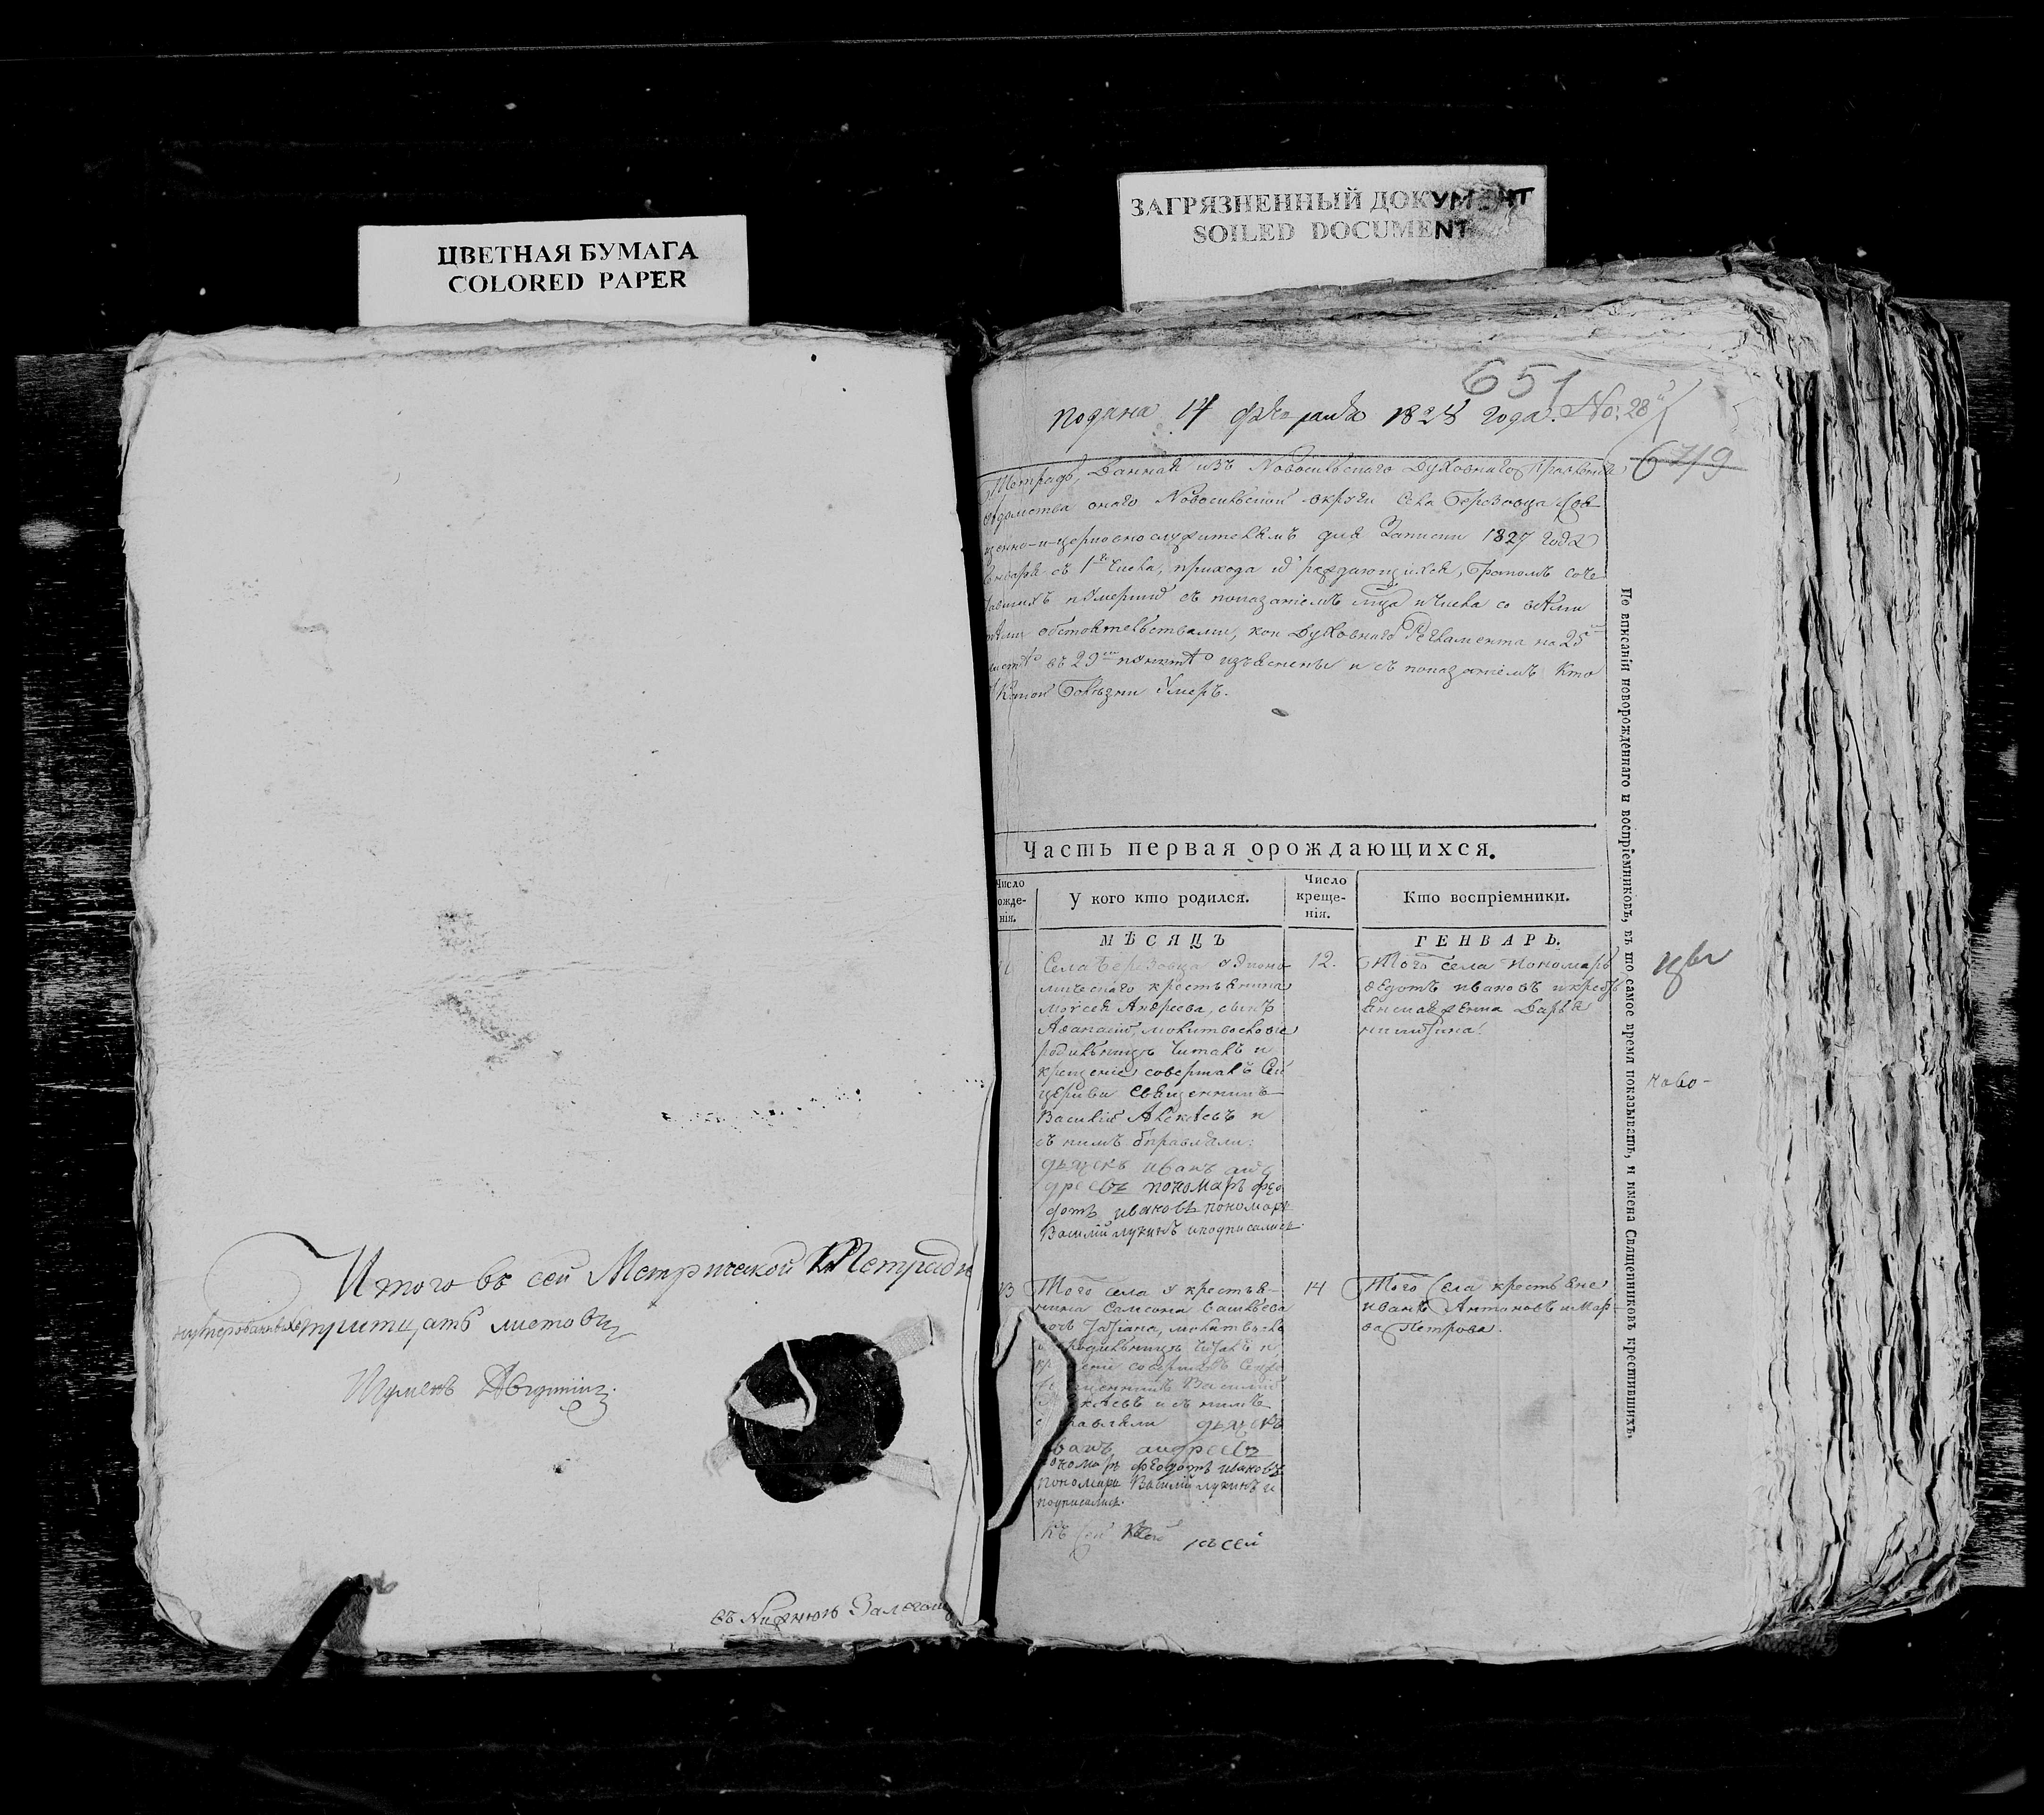 ЦВЕТНАЯ БУМАГА
COLORED PAPER
ЗАГРЯЗНЕННЫЙ ДОКУМЕНТ
SOILED DOCUMENT
Итого въ сей Метрической Тетради
нумерованныхъ тритцать листовъ
Игуменъ
въ Нижнюю Залегощь
651
подана 14 февраля 1828 года. No: 28
679
Тетрадь, данная изъ Новосильскаго Духовнаго Правления
ведомства онаго Новосильской округи села Березовца свя
щенно-и-церковнослужителямъ для Записки 1827 года
Генваря съ 1го числа, прихода их раждающихся, бракомъ соче
тавшихъ и умершихъ съ показаніемъ мца и числа со всеми
теми обстоятельствами, кои Духовнаго Регламента на 25м
листе въ 29м пункте изъяснены и съ показаніемъ кто
какой болезни умеръ.
Часть первая орождающихся.
Число рожде-нія.
У кого кто родился.
Число креще-нія.
Кто воспріемники.
МѢСЯЦЪ
ГЕНВАРЬ.
Села Березовца у эконо
мическаго крестьянина
Моисея Андреева, сынъ
Афанасій, молитвословіе
родильницъ читалъ и
крещеніе совершалъ сей
церкви священникъ
Василій Алексеевъ и
съ нимъ отправляли:
дьячекъ иванъ анд
реевъ пономарь фео
дотъ ивановъ пономарь
Василий лукинъ и подписались.
12.
Того села пономарь
Федотъ ивановъ и
Дарья
никитина.
цви
ново-
13
Того села у крестья-
нина Самсона Савельева
дочь Татіана,
родильницъ читалъ и
крещеніе совершалъ сей
священникъ Василий
Алексеевъ и съ нимъ
отправляли дьячекъ
иванъ андреевъ
пономарь феодотъ ивановъ
пономарь Василий лукинъ и
подписались.
14
Того Села крестьяне
иванъ Антоновъ и Мар-
фа Петрова.
къ сей
къ сей
По вписаніи новорожденнаго и воспріемниковъ, въ то самое время показывать, и имена Священниковъ крестившихъ.